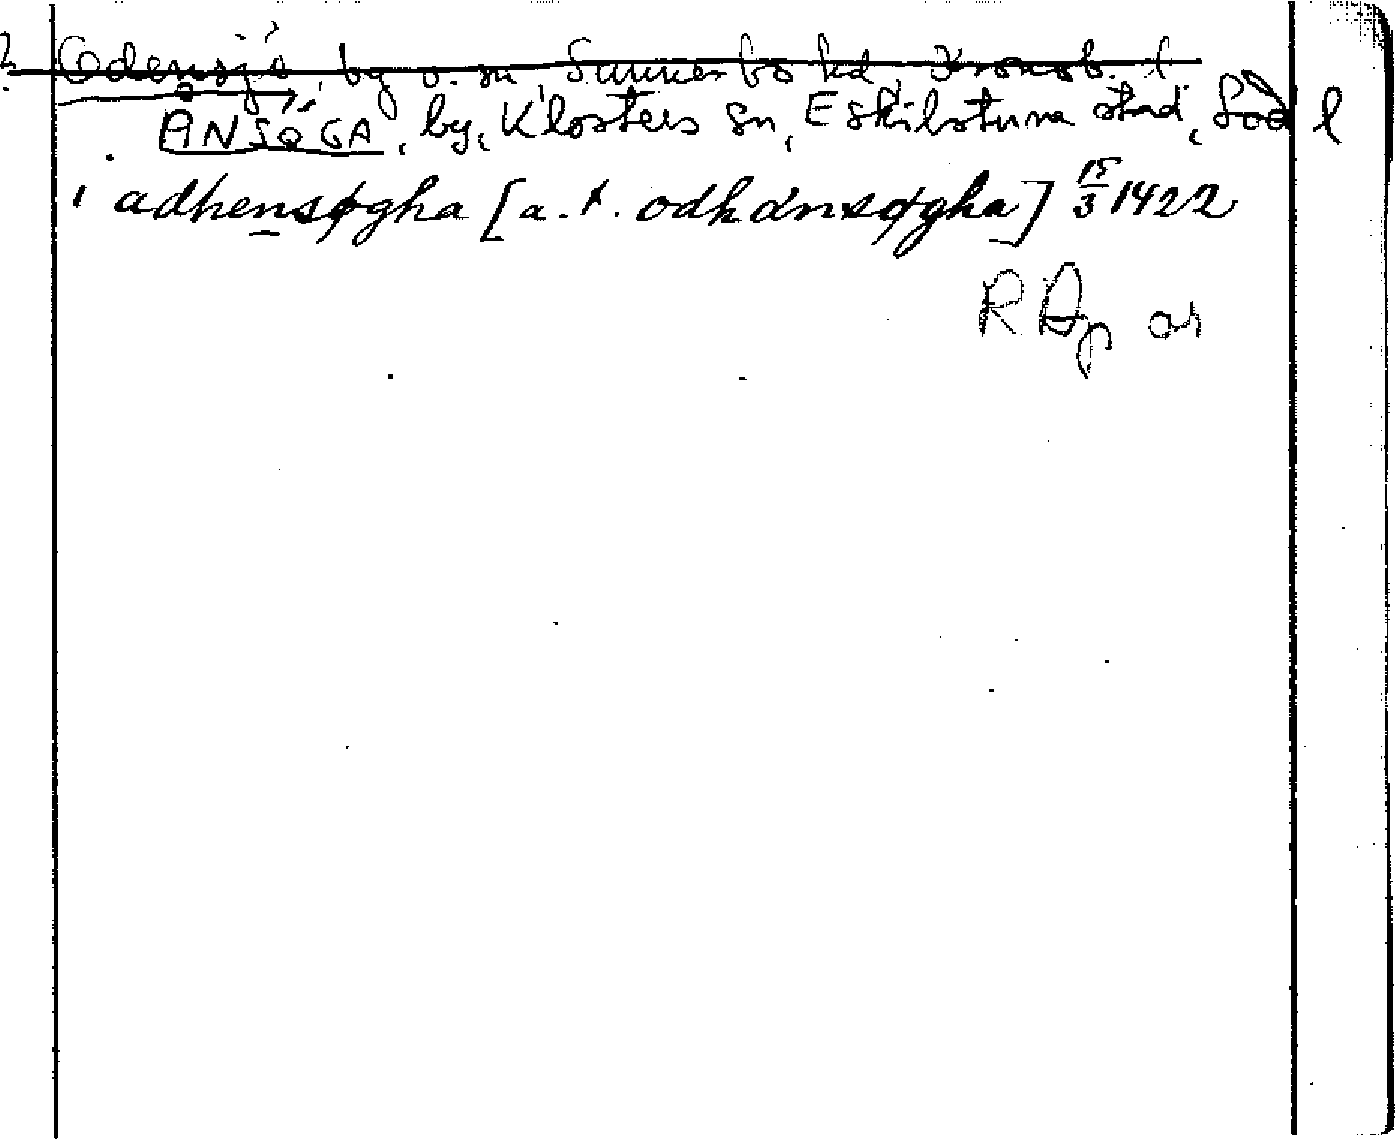 ? Odensjö, by o. sn, Sunnerbo hd, Kronob. l
ÅNSÖGA, by, Klosters sn, Eskilstuna stad, Söd l
i adhensøgha [a. t. odhænsøgha] 15/3 1422
RAp or